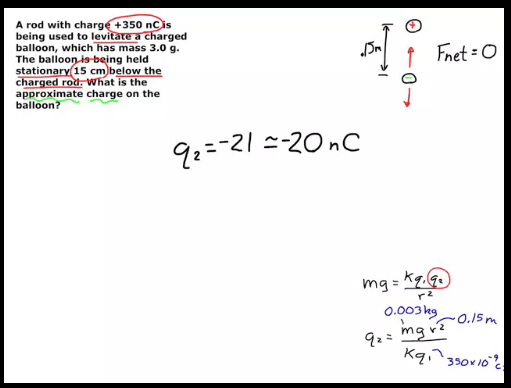 A rod with charge +350 nC is
being used to levitate a charged
balloon, which has mass 3.0 g.
The balloon is being held
stationary 15 cm below the
charged rod. What is the
approximate charge on the
balloon?
.15m
+
Fnet = 0
−
q₂ = -21 ≃ -20 nC
mg = kq₁q₂
r²
0.003kg
0.15m
q₂ = mgr²
kq₁
350x10⁻⁹
C